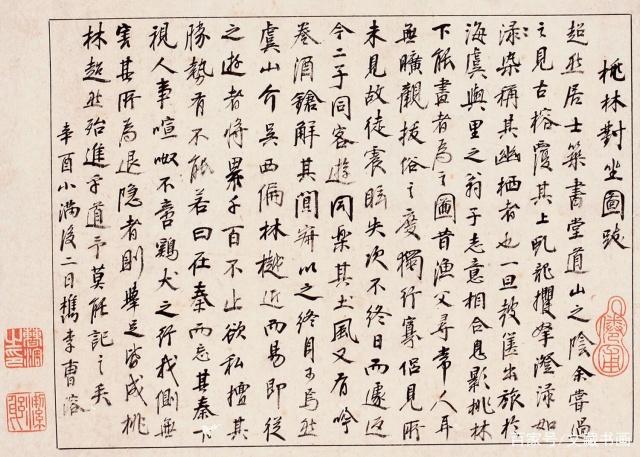 桃林對坐圖跋
超然居士築書堂道山之陰余嘗過
之見古榕覆其上虬龍攫拏澄渌如
渌染稱其幽栖者也一旦發篋出旅於
海虞與里之翁子志意相合息影桃林
下能畫者為之圖昔漁父尋常人耳
無曠觀拔俗之度獨行寡侶見所
未見故徒震眩失次不終日而遽返
今二子同客遊同樂其土風又有吟
卷酒鎗解其間雖以之終身可焉然
虞山介吳西偏林樾近而易即從
之遊者將累千百不止欲私擅其
勝勢有不能若曰在秦而忘其秦下
視人事喧呶不啻鷄犬之行我側無
害其所為退隐者則舉足皆成桃
林超然殆進乎道予莫能記之矣
辛酉小滿後二日檇李曹溶
百家号/文藏书画